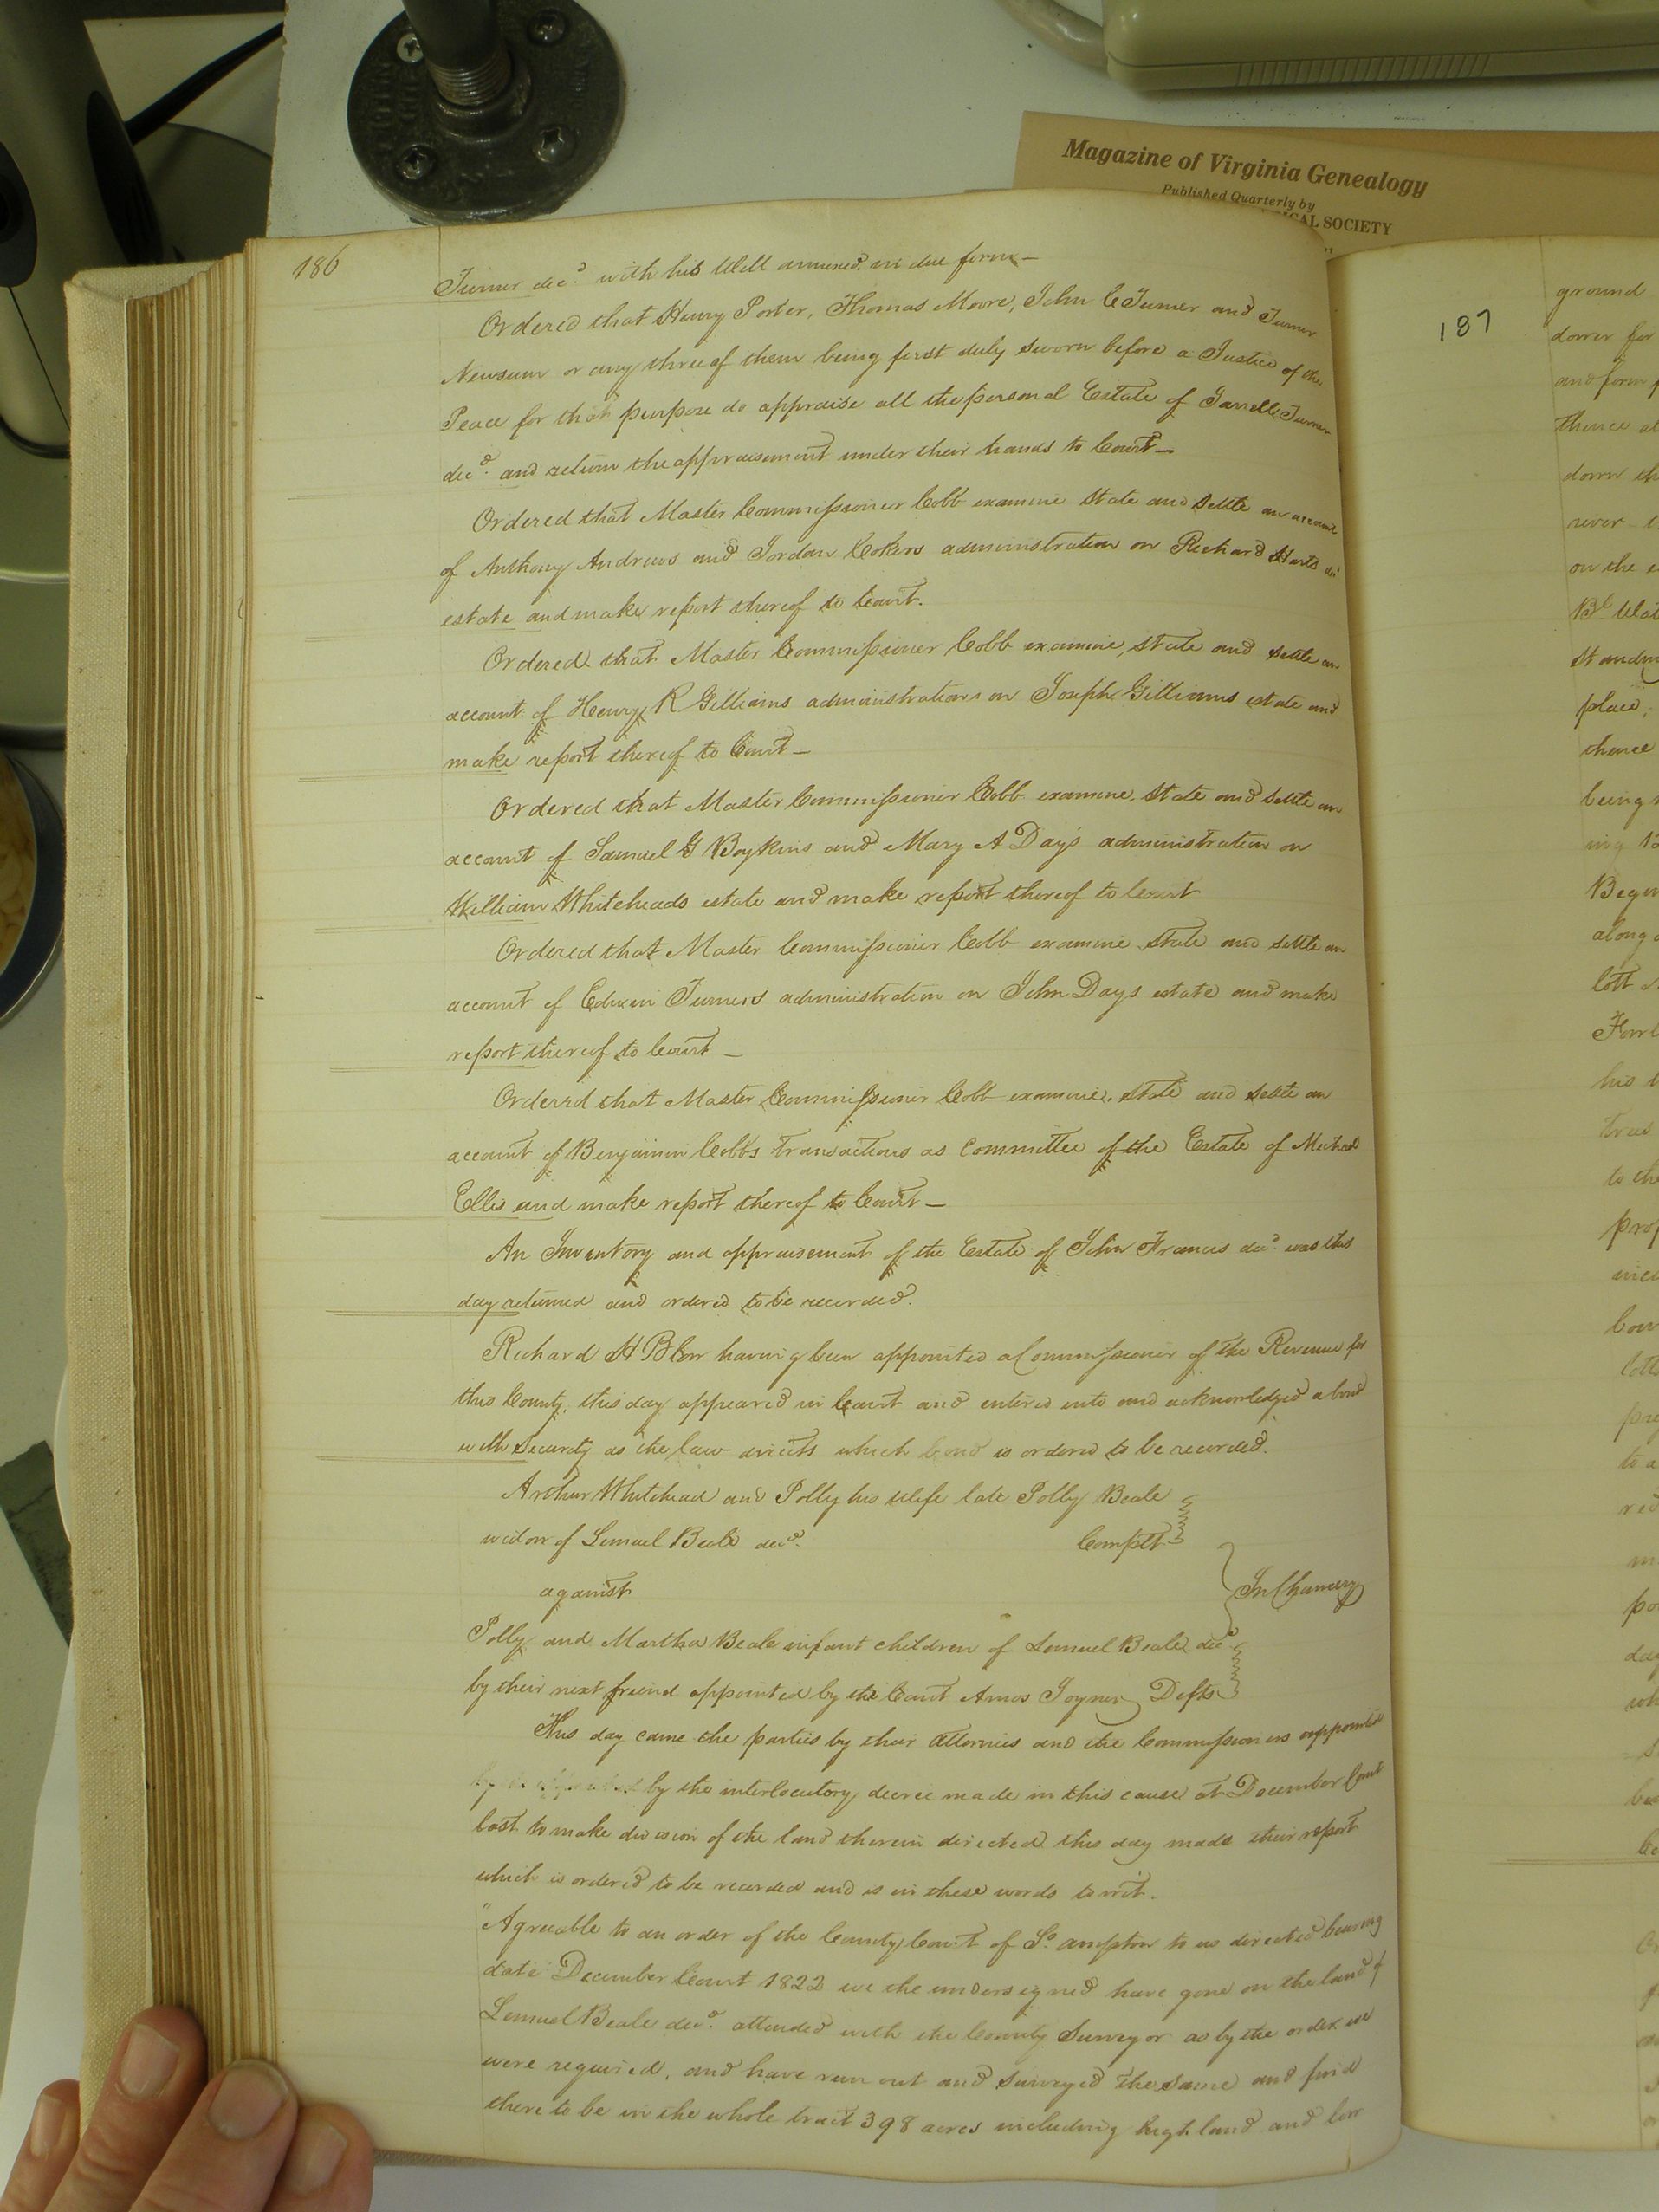 Magazine of Virginia Genealogy
Published Quarterly by
ICAL SOCIETY
186
Turner decd. with his Will annexed in due form—
Ordered that Henry Porter, Thomas Moore, John C Turner and Turner
Newsum or any three of them being first duly sworn before a Justice of the
Peace for that purpose do appraise all the personal Estate of Jarrell Turner
decd. and return the appraisement under their hands to Court—
Ordered that Master Commissioner Cobb examine state and settle an account
of Anthony Andrews and Jordan Cokers administration on Richard Harts dec
estate and make report thereof to Court.
Ordered that Master Commissioner Cobb examine, state and settle an
account of Henry R Gilliams administration on Joseph Gilliams estate and
make report thereof to Court—
Ordered that Master Commissioner Cobb examine, state and settle an
account of Samuel G Boykins and Mary A Day's administration on
William Whiteheads estate and make report thereof to Court
Ordered that Master Commissioner Cobb examine state and settle an
account of Edwin Turners administration on John Days estate and make
report thereof to Court—
Orderrd that Master Commissioner Cobb examine, state and settle an
account of Benjamin Cobbs transactions as Committee of the Estate of Michael
Ellis and make report thereof to Court—
An Inventory and appraisement of the Estate of John Francis decd. was this
day returned and ordered to be recorded.
Richard H Blow having been appointed a Commissioner of the Revenue for
this County, this day appeared in Court and entered into and acknowledged a bond
with Security as the law directs which bond is ordered to be recorded.
Arthur Whitehead and Polly his Wife late Polly Beale
widow of Lemuel Beale decd. Complts
against In Chancery
Polly and Martha Beale infant children of Lemuel Beale decd
by their next friend appointed by the Court Amos Joyner Defts
This day came the parties by their attornies and the Commissioners appointed
by the interlocutory decree made in this cause at December Court
last to make division of the land therein directed this day made their report
which is ordered to be recorded and is in these words towit.
"Agreeable to an order of the County Court of So. ampton to us directed bearing
date December Court 1822 we the undersigned have gone on the land of
Lemuel Beale decd. attended with the County Surveyor as by the order we
were required, and have run out and surveyed the same and find
there to be in the whole tract 398 acres including high land and low
187
ground
dower for
and form
thence al
down th
river
on the
standin
place,
thence
being
Begin
along
lott
his
to the
prop